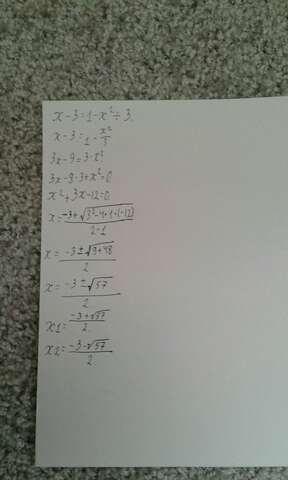 x-3=1-x²÷3
x-3=1-x²/3
3x-9=3-x²
3x-9-3+x²=0
x²+3x-12=0
x=-3±√3²-4·1·(-12)/2·1
x=-3±√9+48/2
x=-3±√57/2
x1=-3+√57/2
x2=-3-√57/2